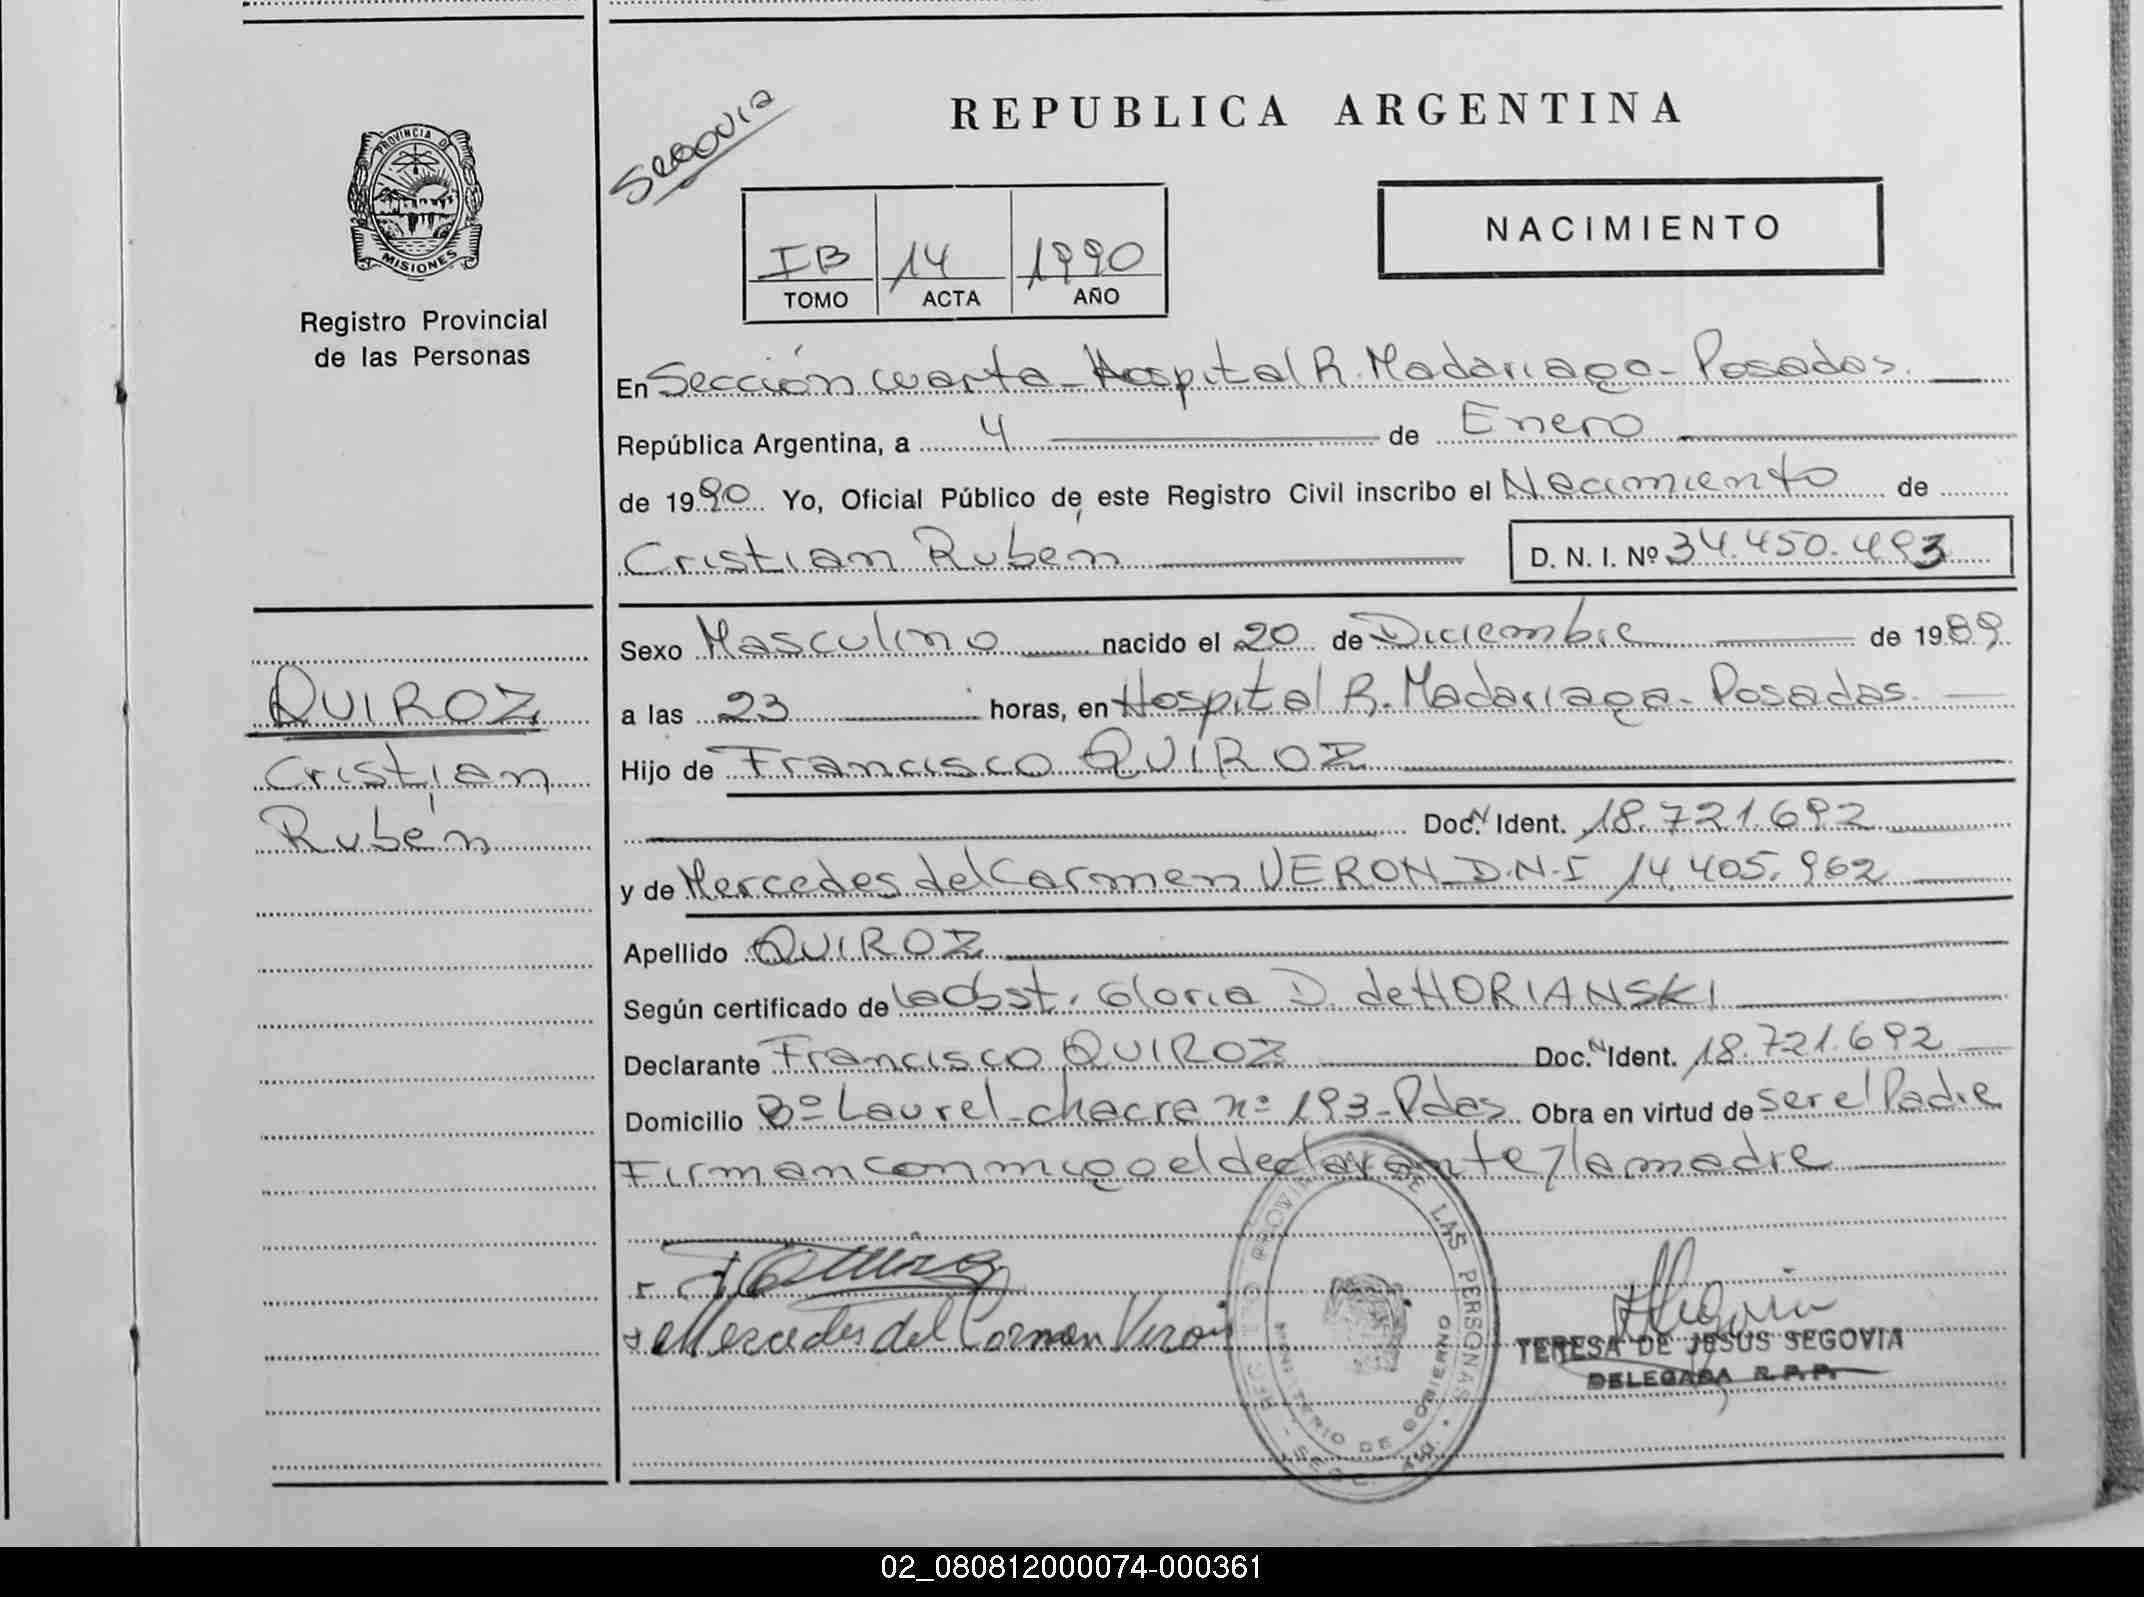 REPUBLICA ARGENTINA
Segovia
NACIMIENTO
PROVINCIA D
MISIONES
IB 14 1990
TOMO ACTA AÑO
Registro Provincial
de las Personas
En Sección cuarta - Hospital R. Madariaga - Posadas.
República Argentina, a 4 de Enero
de 1990 Yo, Oficial Público de este Registro Civil inscribo el Nacimiento de
Cristian Rubén D. N. I. Nº 34.450.493
Sexo Masculino nacido el 20 de Diciembre de 1989
a las 23 horas, en Hospital R. Madariaga - Posadas.
Hijo de Francisco QUIROZ
Doc. N Ident. 18.721.692
y de Mercedes del Carmen VERON - D.N.I 14.405.962
Apellido QUIROZ
Según certificado de la Obst. Gloria D. de HORIANSKI
Declarante Francisco QUIROZ Doc. N Ident. 18.721.692
Domicilio Bº Laurel - chacra nº 193 - Pdas Obra en virtud de ser el Padre
Firman conmigo el declarante y la madre
QUIROZ
Cristian
Rubén
Mercedes del Carmen Veron
PROVINCIAL DE LAS PERSONAS
MINISTERIO DE GOBIERNO
TERESA DE JESUS SEGOVIA
DELEGADA R.P.P.
02_080812000074-000361